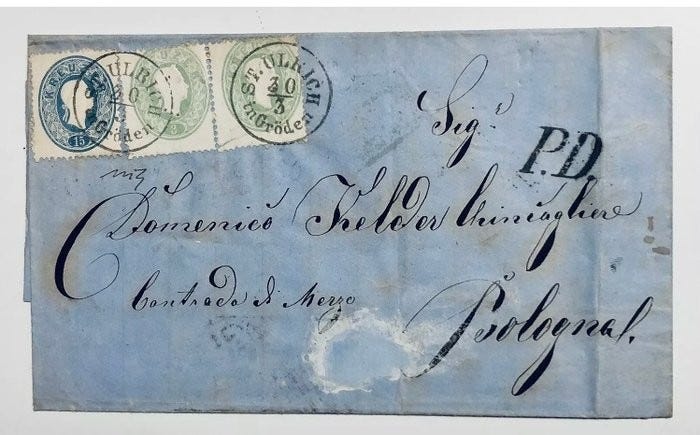 KREUZER
15
3
ST. ULRICH
30
3
in Gröden
ST. ULRICH
30
3
in Gröden
Sigr
P.D.
Domenico Kelder Chincagliere
Contrada di Mezzo
Bologna.